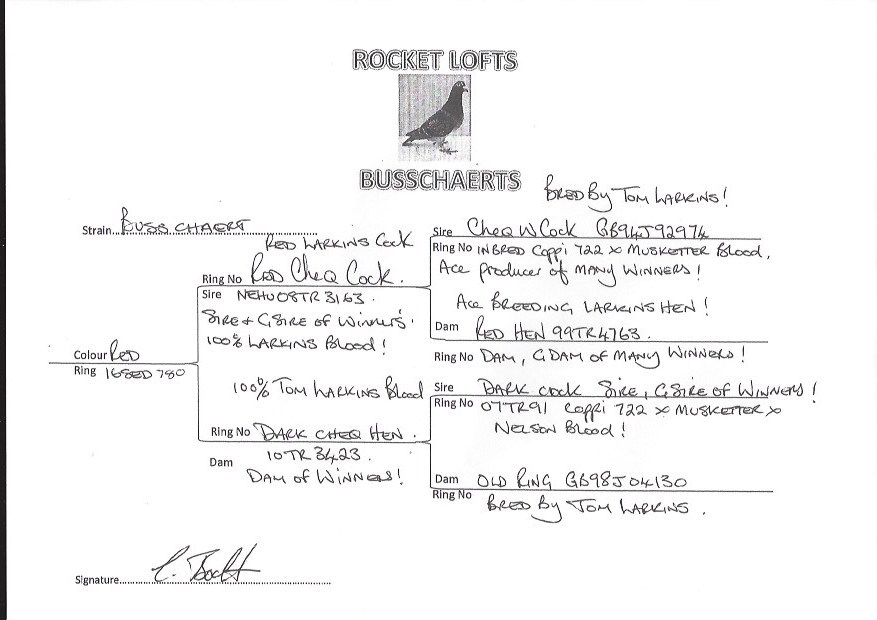 ROCKET LOFTS
BUSSCHAERTS
BRED By TOM LARKINS!
Strain BUSSCHAERT
RED LARKINS COCK
Ring No RED CHEQ COCK.
Sire NEHU08TR3163.
SIRE + G.SIRE OF WINNERS.
100% LARKINS BLOOD!
Colour RED
Ring 16SED 780
100% TOM LARKINS BLOOD
Ring No DARK CHEQ HEN.
Dam 10TR3423.
DAM OF WINNERS!
Sire CHEQ W COCK GB94J92974
Ring No INBRED COPPI 722 x MUSKETTER BLOOD,
ACE PRODUCER OF MANY WINNERS!
ACE BREEDING LARKINS HEN!
Dam RED HEN 99TR4763.
Ring No DAM, G.DAM OF MANY WINNERS!
Sire DARK COCK SIRE, G.SIRE OF WINNERS!
Ring No 07TR91 COPPI 722 x MUSKETTER x
NELSON BLOOD!
Dam OLD RING GB98J04130
Ring No BRED By TOM LARKINS.
Signature